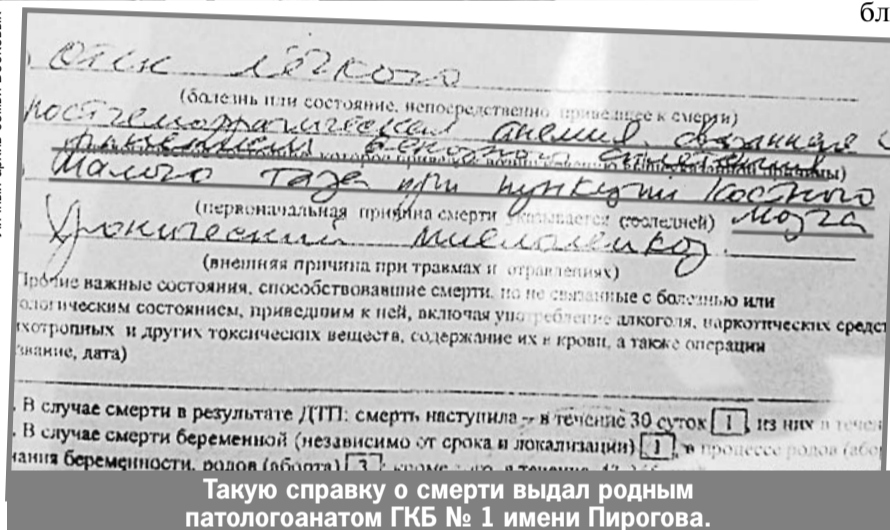 бл
отек лёгкого
(болезнь или состояние, непосредственно приведшее к смерти)
постгеморрагическая анемия, связанная с
ранением венозного сплетения
малого таза при пункции костного
(первоначальная причина смерти указывается последней) мозга
Хронический миелолейкоз.
(внешняя причина при травмах и отравлениях)
Прочие важные состояния, способствовавшие смерти, но не связанные с болезнью или
ологическим состоянием, приведшим к ней, включая употребление алкоголя, наркотических средст
ихотропных и других токсических веществ, содержание их в крови, а также операции
звание, дата)
. В случае смерти в результате ДТП: смерть наступила – в течение 30 суток 1, из них в течен
. В случае смерти беременной (независимо от срока и локализации) 1, в процессе родов (абор
чания беременности, родов (аборта) 3; кроме того, в течение
Такую справку о смерти выдал родным
патологоанатом ГКБ № 1 имени Пирогова.